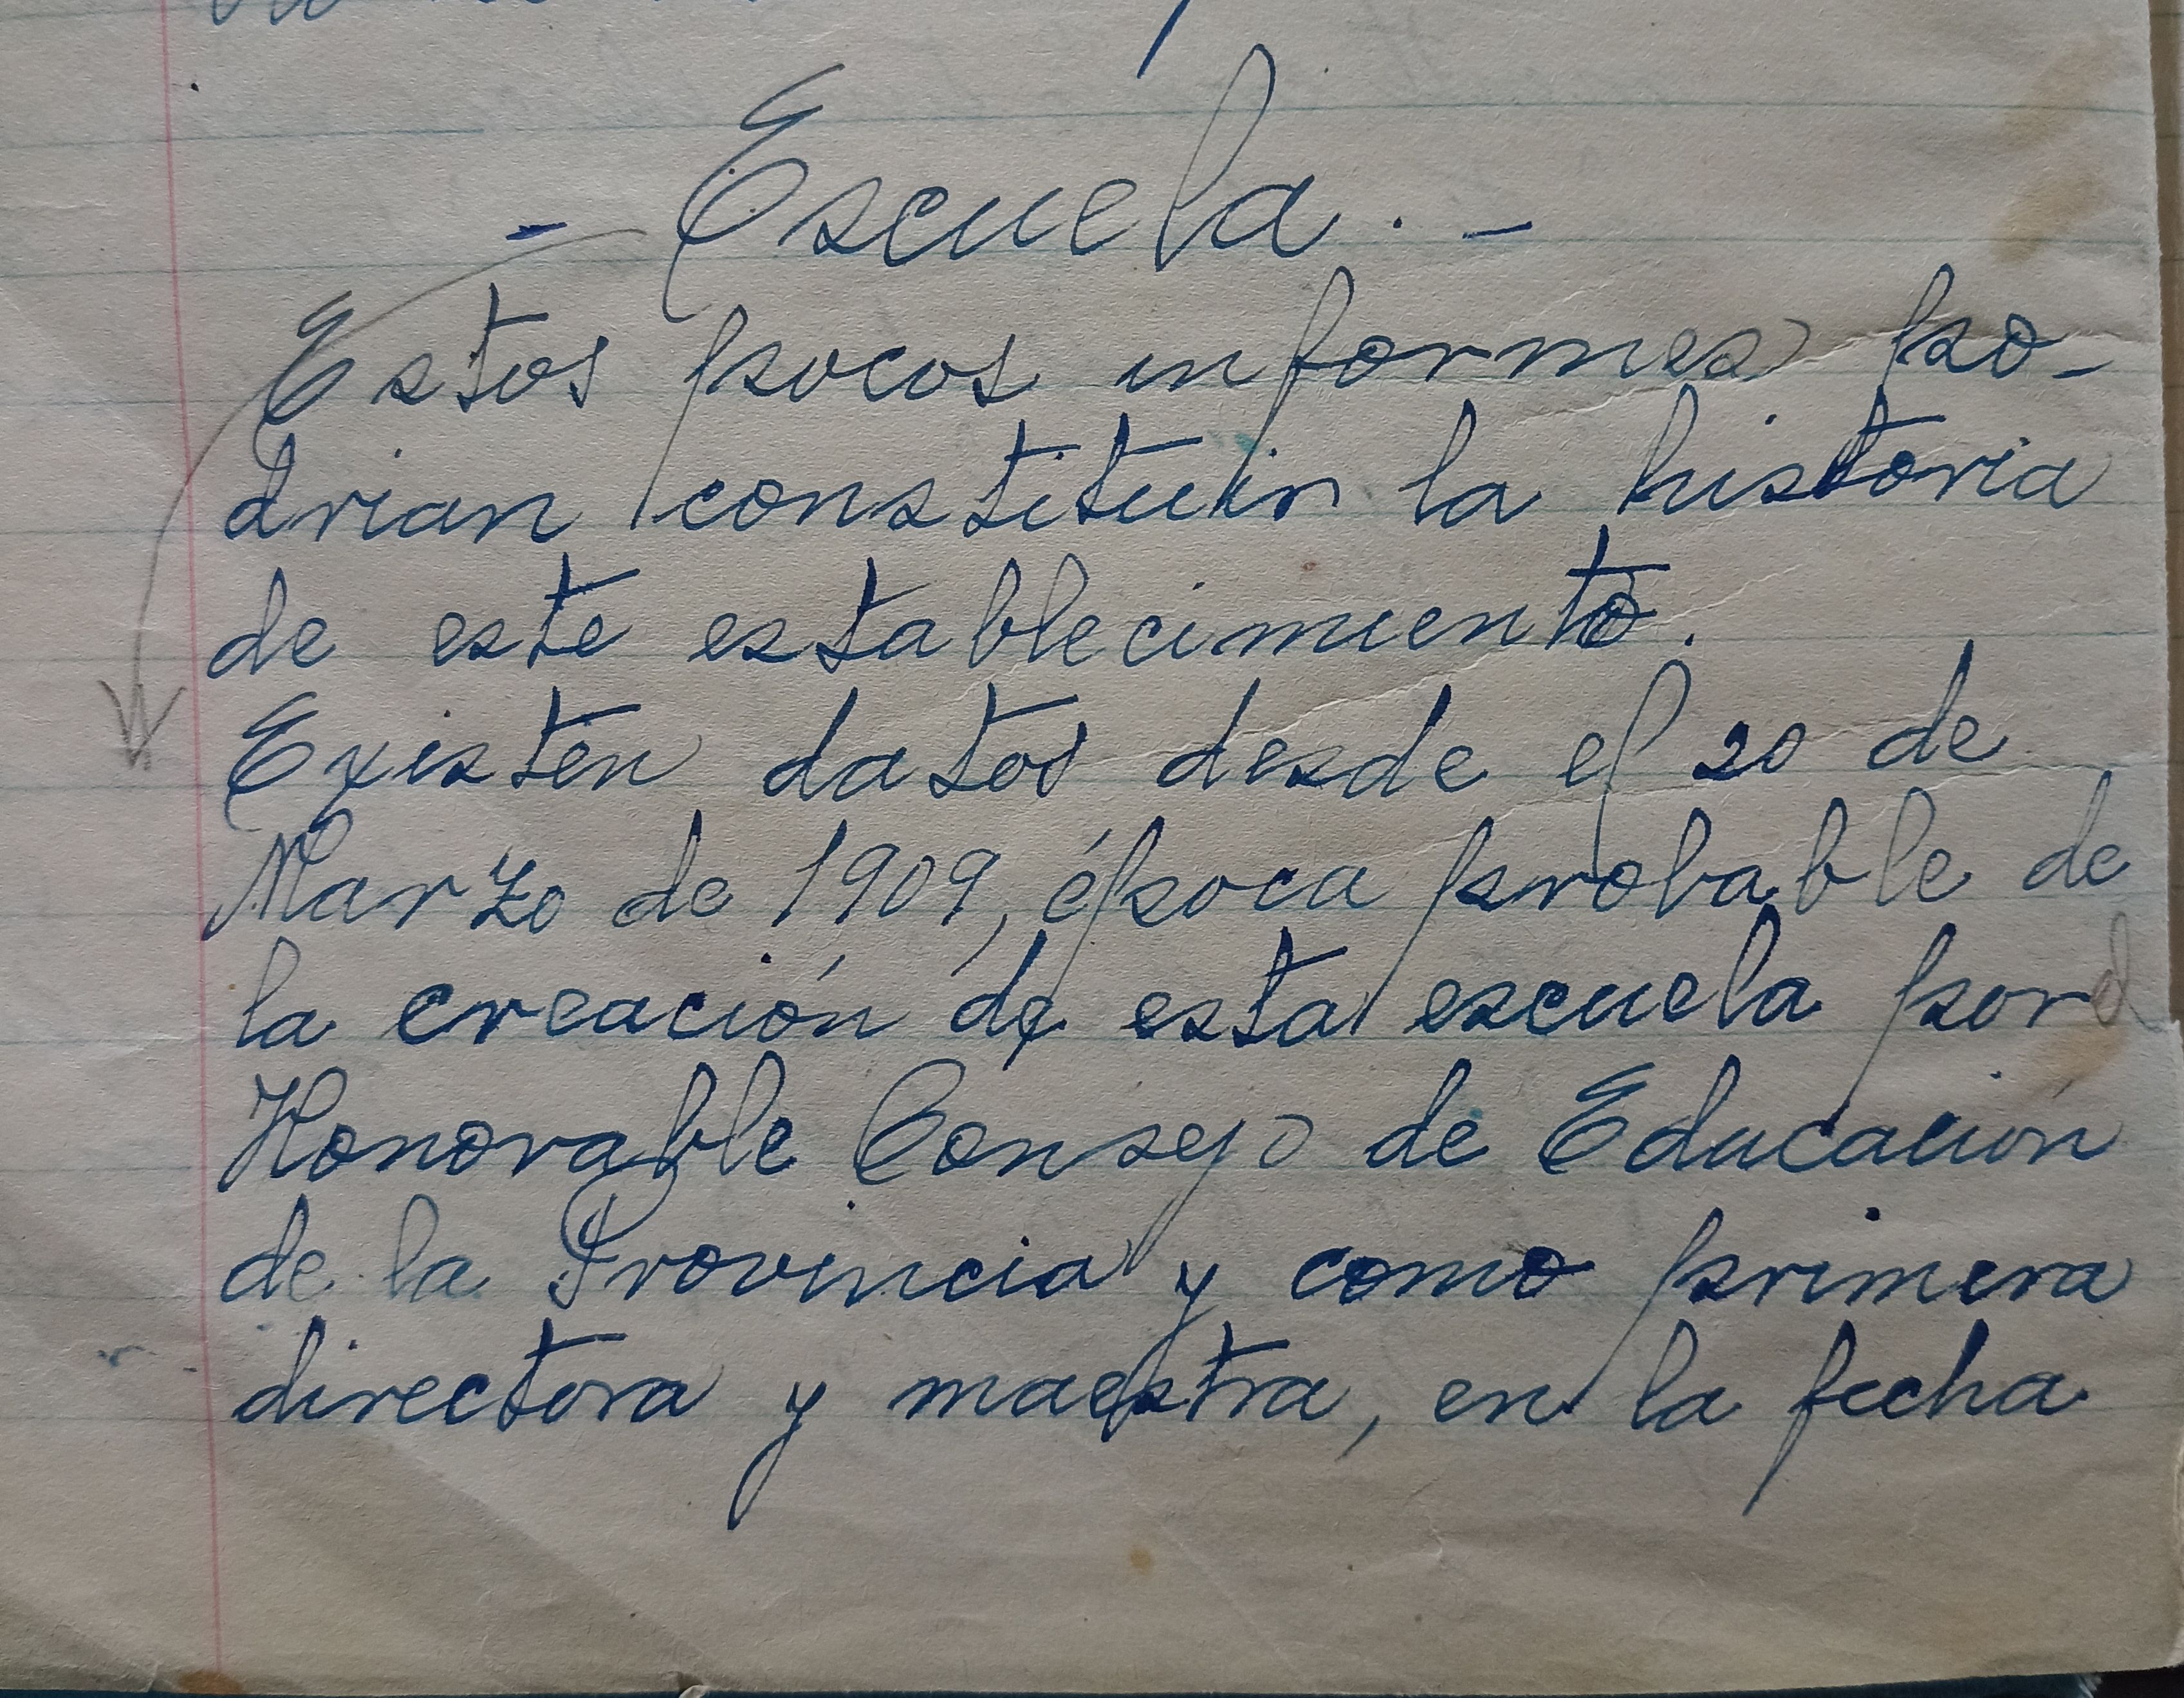 - Escuela. -
Estos pocos informes po-
drian constituir la historia
de este establecimiento.
Existen datos desde el 20 de
Marzo de 1909, época probable de
la creación de esta escuela por el
Honorable Consejo de Educación
de la Provincia y como primera
directora y maestra, en la fecha